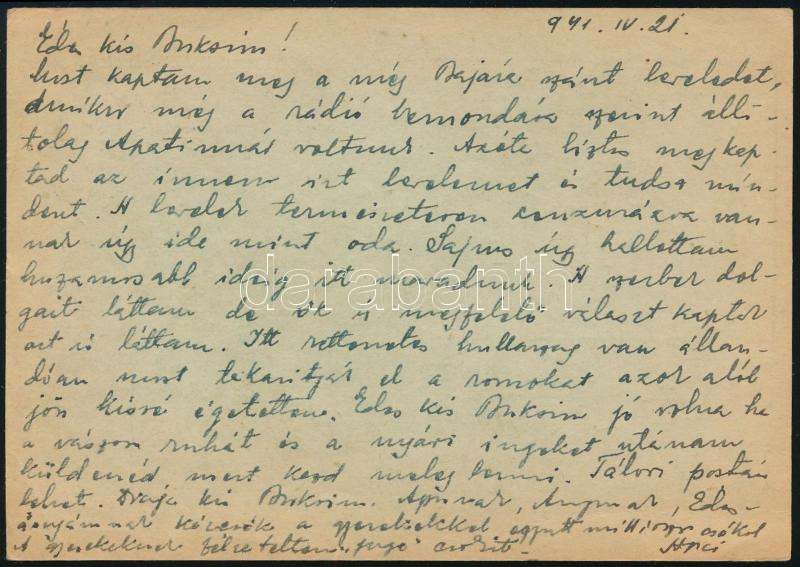 941. IV. 21.
Édes kis Buksim!
Most kaptam meg a még Bajára szánt leveledet,
amikor még a rádió bemondása szerint állí-
tolag Apatinnál voltunk. Azóta biztos megkap-
tad az innen írt levelemet és tudsz min-
dent. A levelek természetesen cenzurázva van-
nak úgy ide mint oda. Sajnos úgy hallottam
huzamosabb ideig itt maradunk. A szerbek dol-
gait láttam de ők is megfelelő választ kaptak
azt is láttam. Itt rettenetes hullaszag van állan-
dóan most takarítják el a romokat azok alól
jön kissé égetetten. Édes kis Buksim jó volna ha
a vászon ruhát és a nyári ingeket utánam
küldenéd mert kezd meleg lenni. Tábori postán
lehet. Drága kis Buksim. Apunak, Anyunak, Édes-
anyámnak kezeik a gyerekekkel együtt milliószor csókol
A gyerekeknek félretettem csokit. Apci
darabanth